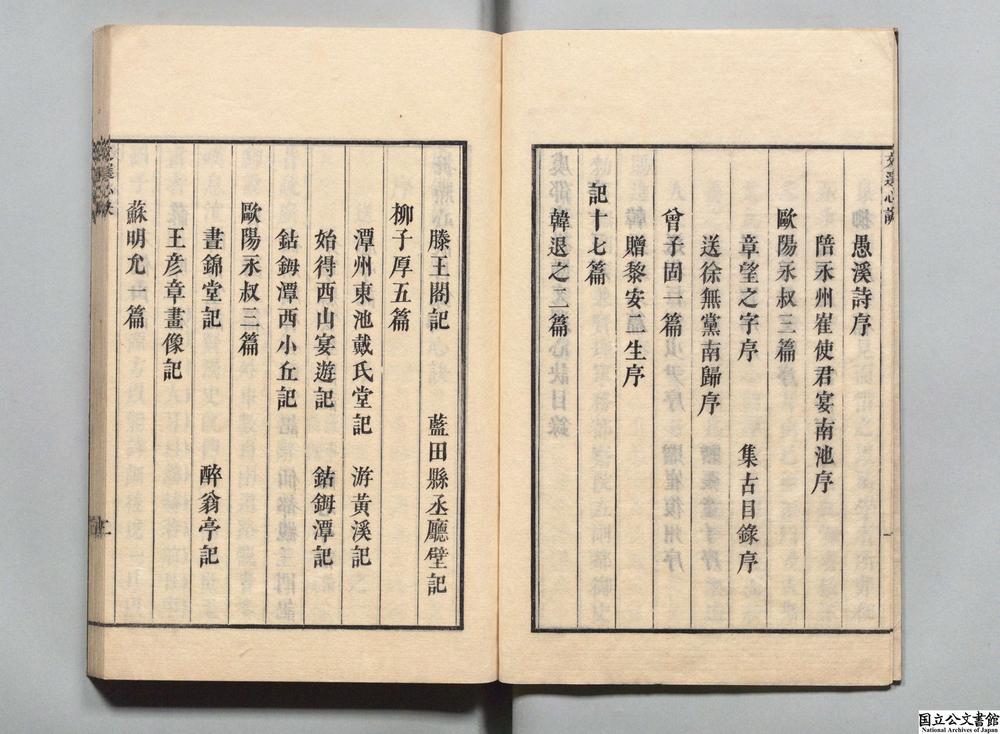 愚溪詩序
陪永州崔使君宴南池序
歐陽永叔三篇
章望之字序　集古目錄序
送徐無黨南歸序
曾子固一篇
贈黎安二生序
記十七篇
韓退之二篇
滕王閣記　藍田縣丞廳壁記
柳子厚五篇
潭州東池戴氏堂記　游黃溪記
始得西山宴遊記　鈷鉧潭記
鈷鉧潭西小丘記
歐陽永叔三篇
晝錦堂記　醉翁亭記
王彦章畫像記
蘇明允一篇
国立公文書館
National Archives of Japan